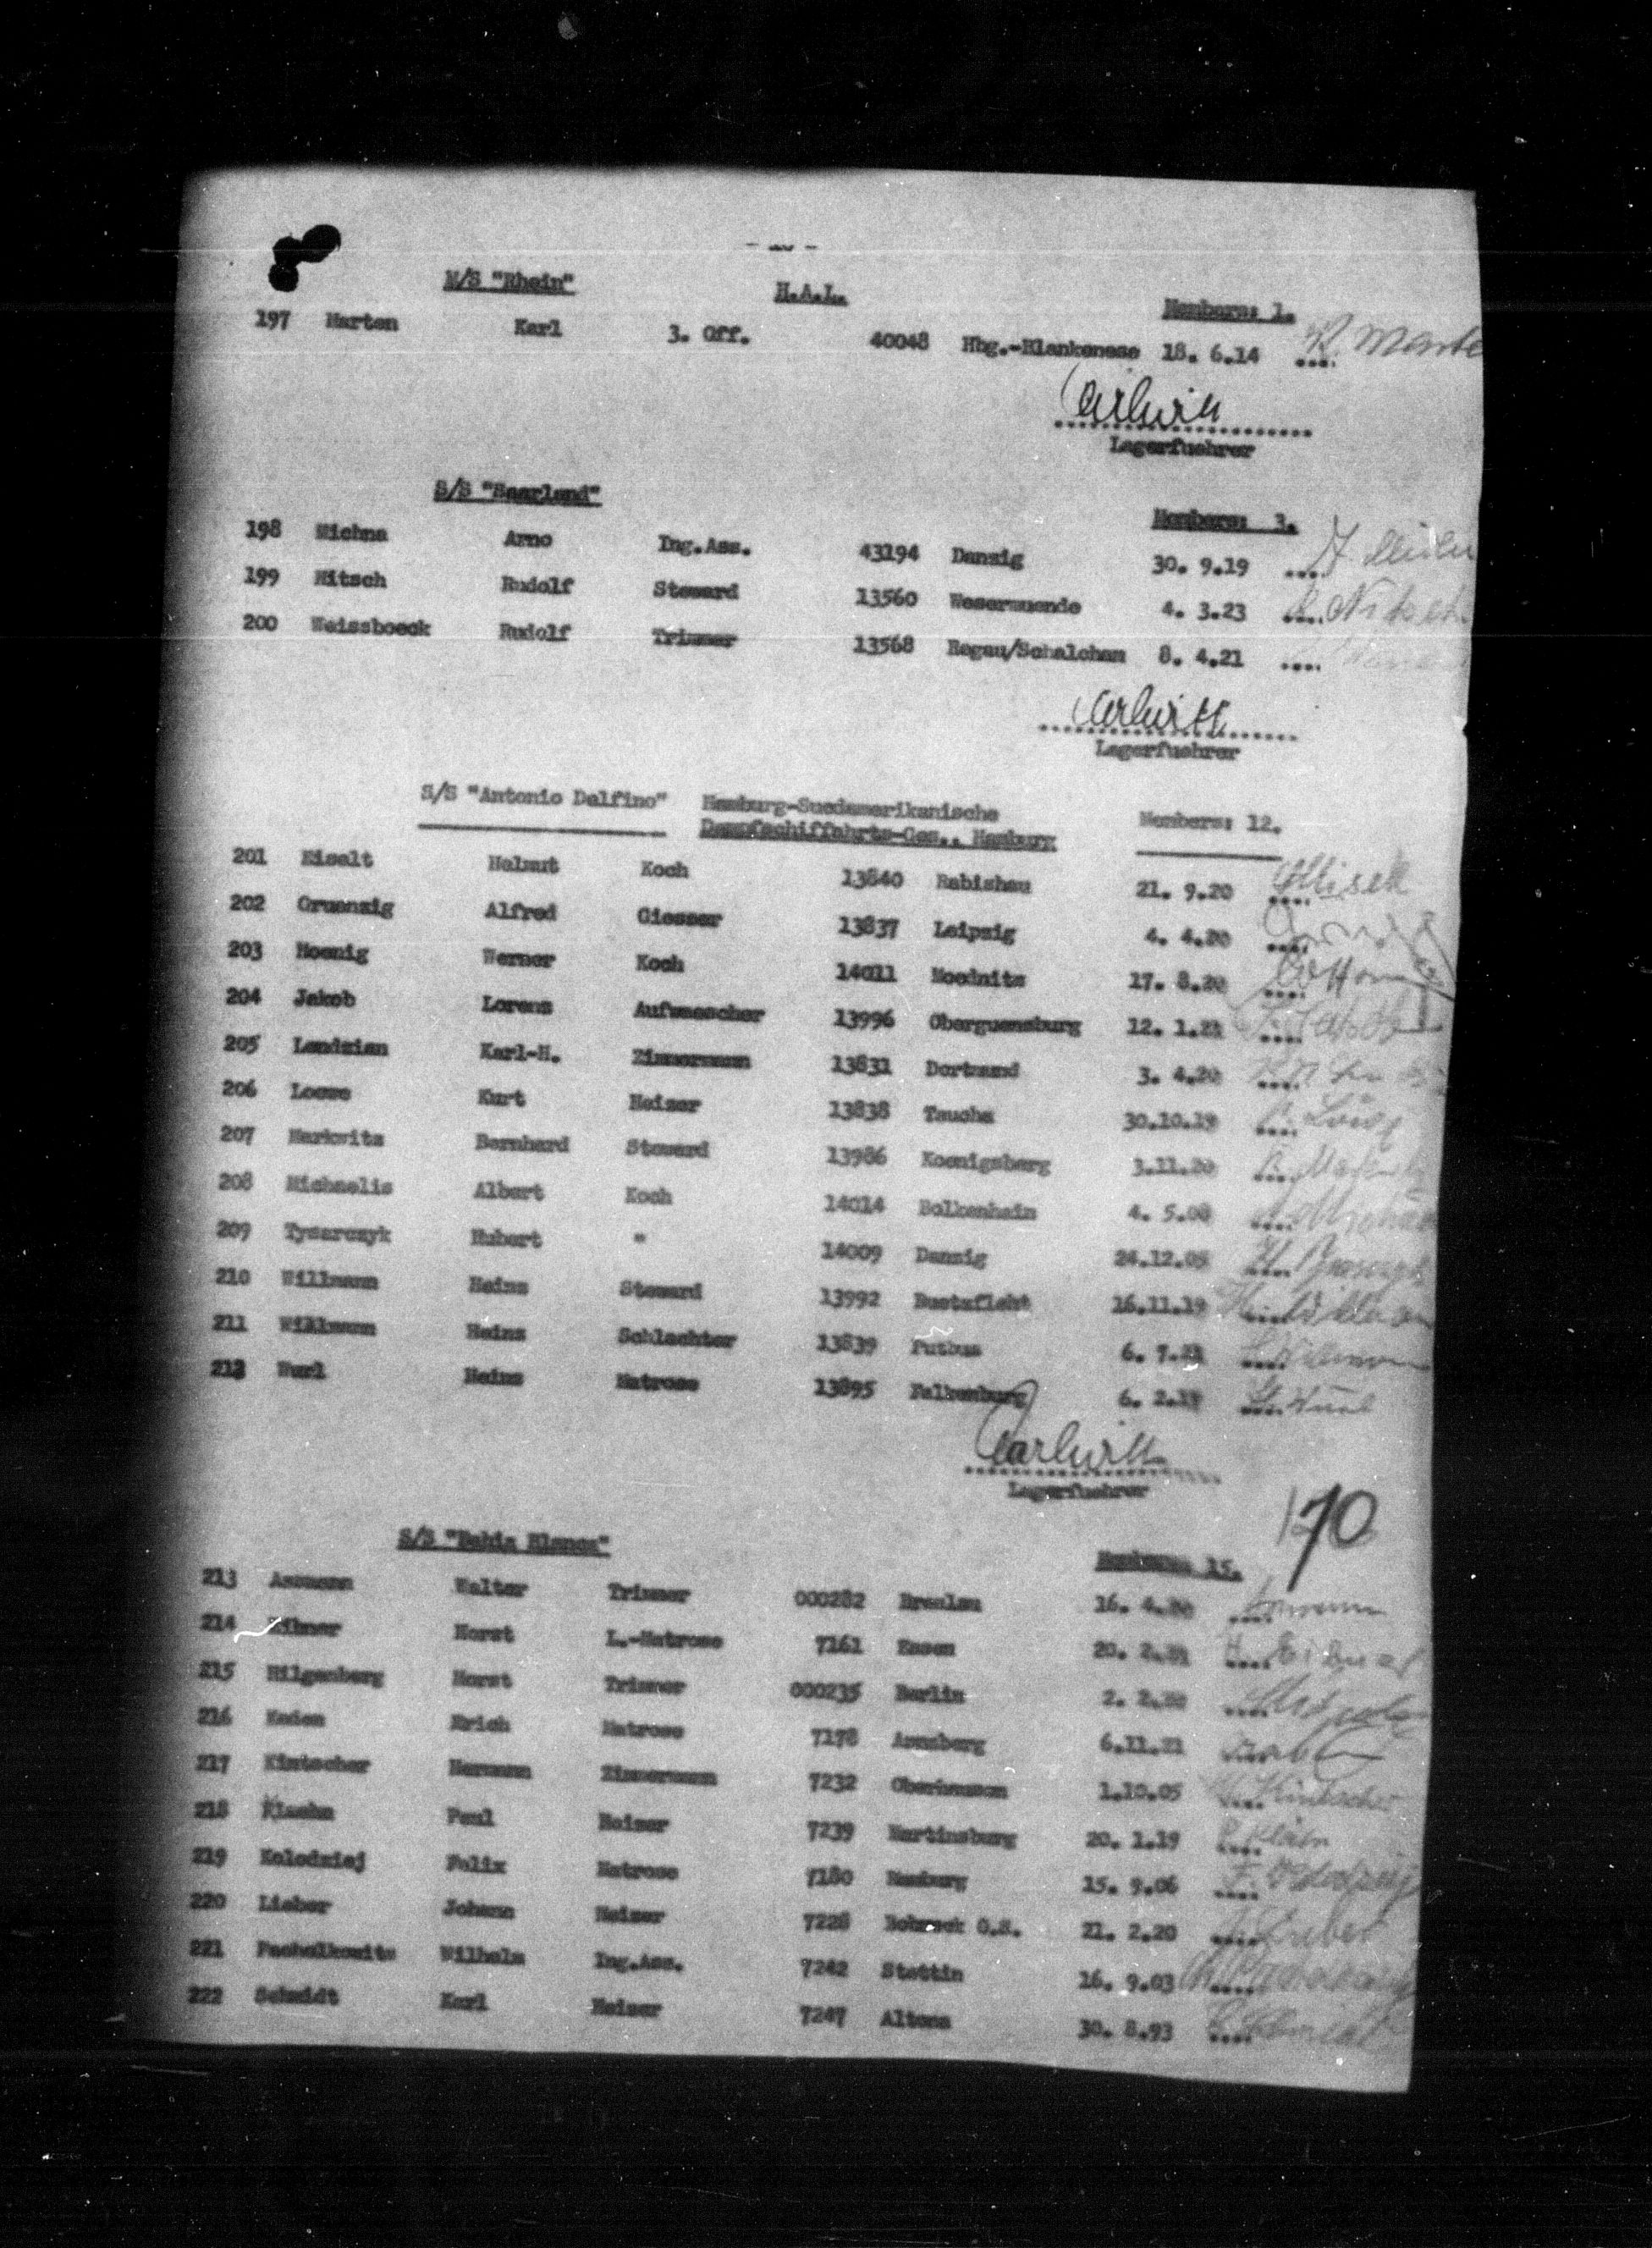 M/S "Rhein" H.A.L. Members: 1.
197 Marten Karl 3. Off. 40048 Hbg.-Blankenese 18. 6.14 .... Marte
Carlwitt
Lagerfuehrer
S/S "Saarland" Members: 3.
198 Michna Arno Ing.Ass. 43194 Danzig 30. 9.19 ....
199 Nitsch Rudolf Steward 13560 Wesermuende 4. 3.23 .... R. Nitsch
200 Weissboeck Rudolf Trimmer 13568 Regau/Schalchen 8. 4.21 ....
Carlwitt
Lagerfuehrer
S/S "Antonio Delfino" Hamburg-Suedamerikanische Members: 12.
Dampfschiffahrts-Ges., Hamburg
201 Eiselt Helmut Koch 13840 Rabishau 21. 9.20 ....
202 Gruenzig Alfred Giesser 13837 Leipzig 4. 4.20 ....
203 Hoenig Werner Koch 14011 17. 8.20 ....
204 Jakob Lorenz Aufwaescher 13996 Oberguensburg 12. 1.21 ....
205 Lendzian Karl-H. Zimmermann 13831 Dortmund 3. 4.20 ....
206 Loewe Kurt Heizer 13838 Taucha 30.10.19 ....
207 Markwitz Bernhard Steward 13986 Koenigsberg 3.11.20 ....
208 Michaelis Albert Koch 14014 Bolkenhain 4. 5.00 ....
209 Tysarczyk Hubert " 14009 Danzig 24.12.05 ....
210 Willmann Heinz Steward 13992 16.11.19 ....
211 Willmann Heinz Schlachter 13839 Putbus 6. ....
212 Wurl Heinz Matrose 13895 Falkenburg 6. ....
Carlwitt
Lagerfuehrer
170
S/S "Bahia Blanca" Members: 15.
213 Assmann Walter Trimmer 000282 Breslau 16. 4.20 ....
214 Eibner Horst L.-Matrose 7161 Essen 20. ....
215 Hilgenberg Horst Trimmer 000235 Berlin 2. 2.20 ....
216 Kaden Erich Matrose 7178 Arnsberg 6.11.21 ....
217 Kintscher Hermann Zimmermann 7232 Oberhausen 1.10.05 ....
218 Klaehn Paul Heizer 7239 Martinsburg 20. 1.19 ....
219 Kolodziej Felix Matrose 7180 Hamburg 15. 9.06 ....
220 Lieber Johann Heizer 7228 Bobreck O.S. 21. 2.20 ....
221 Pachalkowitz Wilhelm Ing.Ass. 7242 Stettin 16. 9.03 ....
222 Schmidt Karl Heizer 7247 Altona 30. 8.93 ....